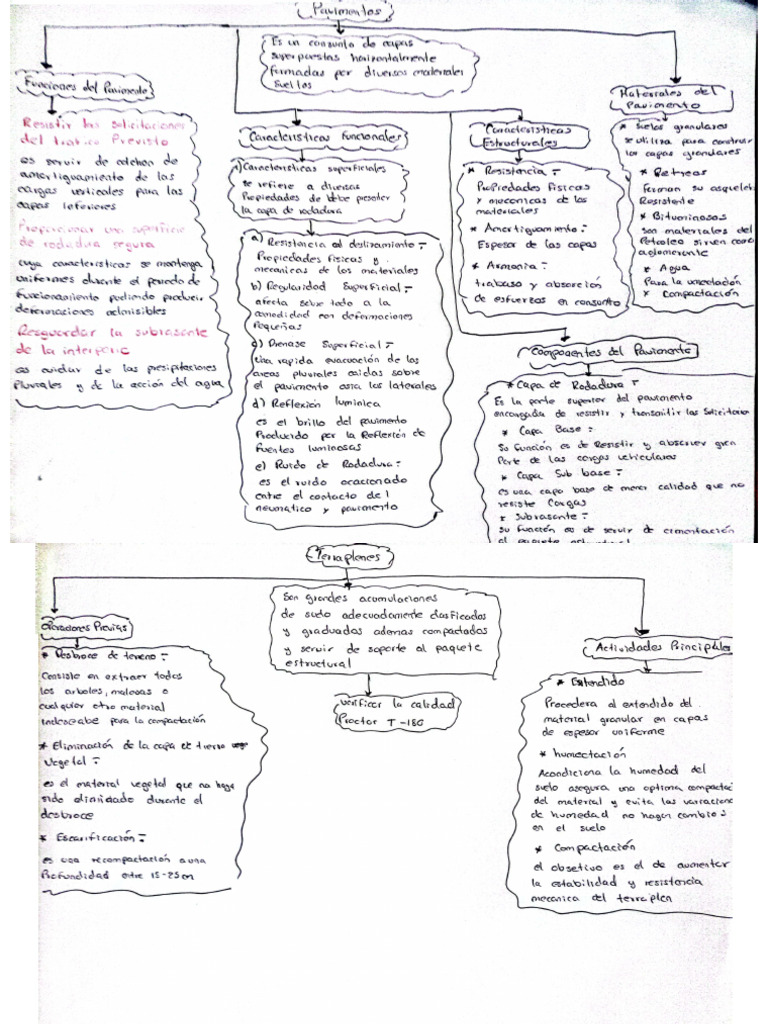 Pavimentos
Es un conjunto de capas
superpuestas horizontalmente
formadas por diversos materiales
suellos
Funciones del Pavimento
Resistir las solicitaciones
del trafico Previsto
es servir de colchon de
amortiguamiento de las
cargas verticales para las
capas inferiores
Proporcionar una superficie
de rodadura segura
cuya caracteristicas se mantenga
uniformes durante el periodo de
funcionamiento pudiendo producir
deformaciones admisibles
Resguardar la subrasante
de la interperie
es cuidar de las presipitaciones
Plurales y de la acción del agua
Caracteristicas Funcionales
1) Caracteristicas superficiales
se refiere a diversas
Propiedades de debe presentar
la capa de rodadura
a) Resistencia al deslizamiento:-
Propiedades fisicas y
mecanicas de los materiales
b) Regularidad Superficial:-
afecta sobre todo a la
comodidad con deformaciones
Pequeñas
c) Drenase Superficial:-
Una rapida evacuación de las
areas plurales caidas sobre
el pavimento asia los laterales
d) Reflexión luminica
es el brillo del pavimento
Producido por la Reflexión de
fuentes luminosas
e) Ruido de Rodadura:-
es el ruido ocacionado
entre el contacto del
neumatico y pavimento
Caracteristicas
Estructurales
* Resistencia:-
Propiedades fisicas
y mecanicas de los
materiales
* Amortiguamiento:-
Espesor de las capas
* Armonia:-
trabaso y absorción
de esfuerzos en consunto
Materiales del
Pavimento
* Suelos granulares
se utiliza para construir
las capas granulares
* Petreos
Forman su esquelet
Resistente
* Bituminosos
son materiales del
Petroleo sirven como
aglomerante
* Agua
Para la umectación
y compactación
Componentes del Pavimento
* Capa de Rodadura:-
Es la parte superior del pavimento
encargada de resistir y transmitir las Solicitacion
* Capa Base:-
Su función es de Resistir y absorver gran
Parte de las cargas vehiculares
* Capa Sub base:-
es una capa base de menor calidad que no
resiste Cargas
* Subrasante:-
Su función es de servir de cimentación
al paquete estructural
Terraplenes
Son grandes acumulaciones
de suelo adecuadamente clasificados
y graduados ademas compactados
y servir de soporte al paquete
estructural
verificar la calidad
Proctor T-180
Operaciones Previas
* Desbroce de terreno:-
Consiste en extraer todos
los arboles, malesas o
cualquier otro material
indeseabe para la compactación
* Eliminación de la capa de tierra vege
Vegetal:-
es el material vegetal que no haya
sido eliminado durante el
desbroce
* Escarificación:-
es una recompactación a una
Profundidad entre 15-25cm
Actividades Principales
* Extendido
Procedera al extendido del
material granular en capas
de espesor uniforme
* humectación
Acondiciona la humedad del
suelo asegura una optima compactaci
del material y evita las variacione
de humedad no hagan cambios
en el suelo
* Compactación
el obsetivo es el de aumentar
la estabilidad y resistencia
mecanica del terraplen